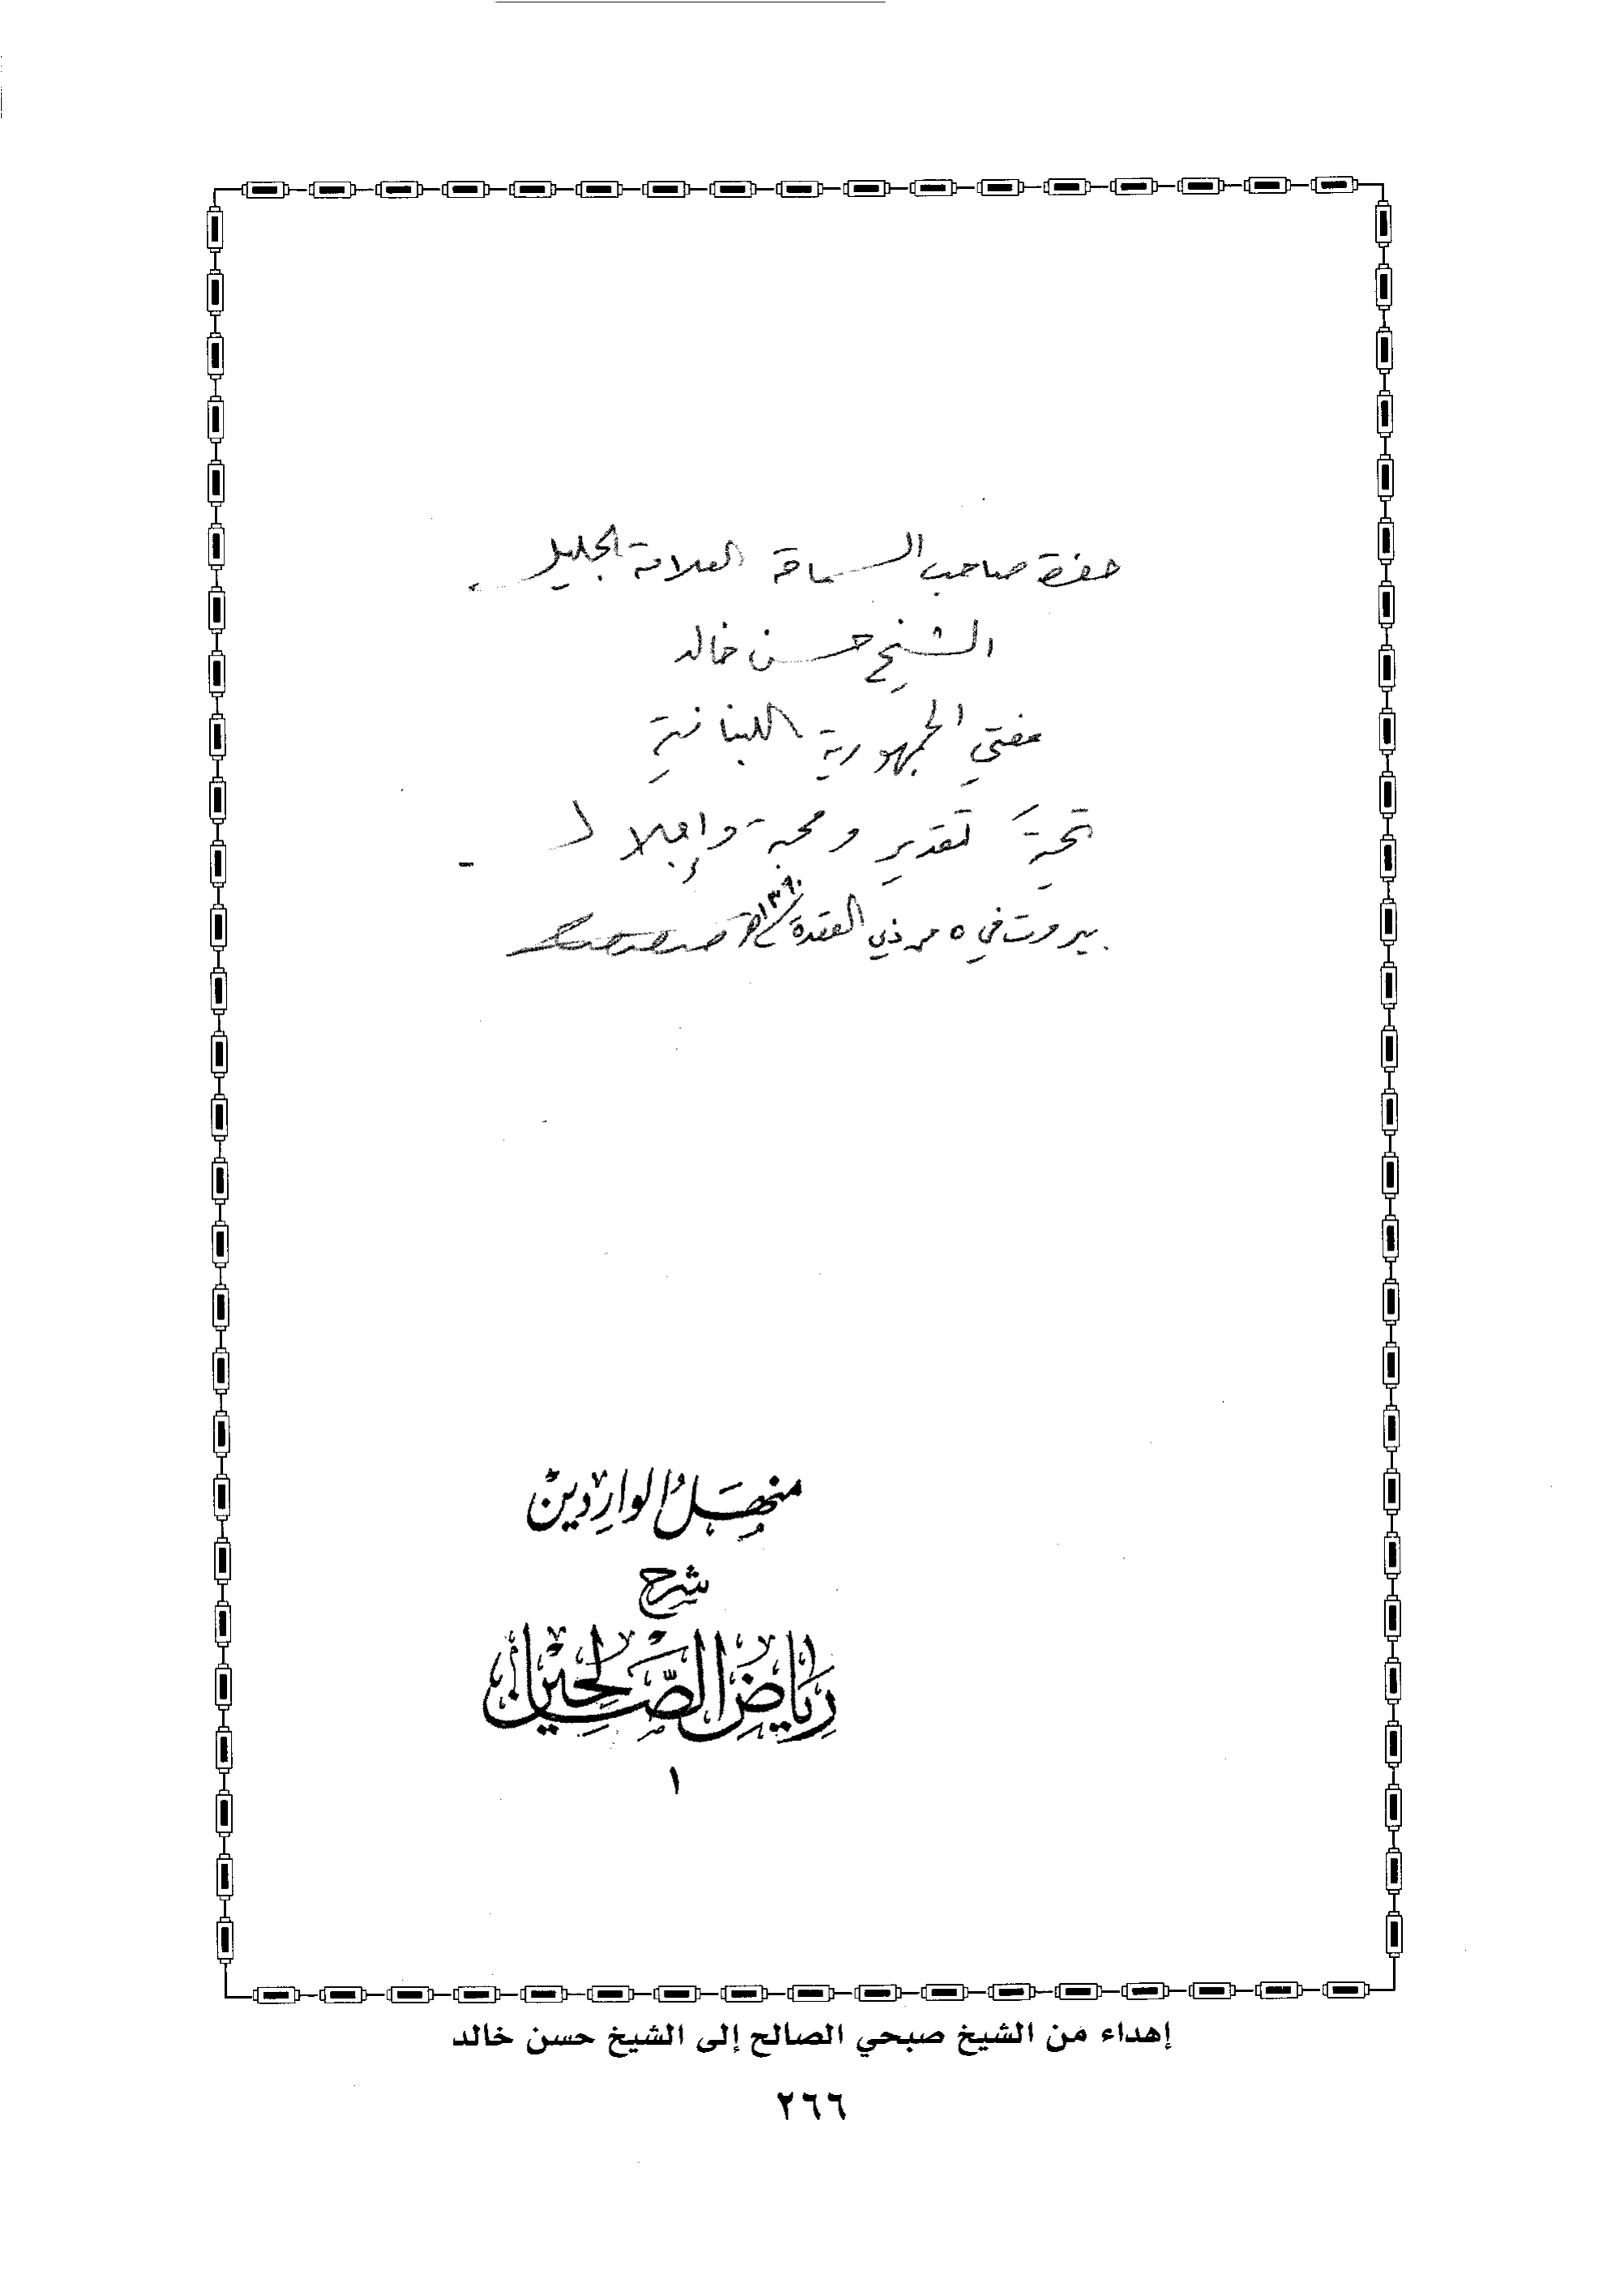 حضرة صاحب السماحة العلامة الجليل
الشيخ حسن خالد
مفتي الجمهورية اللبنانية
تحية تقدير ومحبة وإجلال -
بيروت في ٥ من ذي القعدة ١٣٩٠هـ
منهل الواردين
شرح
رياض الصالحين
١
إهداء من الشيخ صبحي الصالح إلى الشيخ حسن خالد
٢٦٦